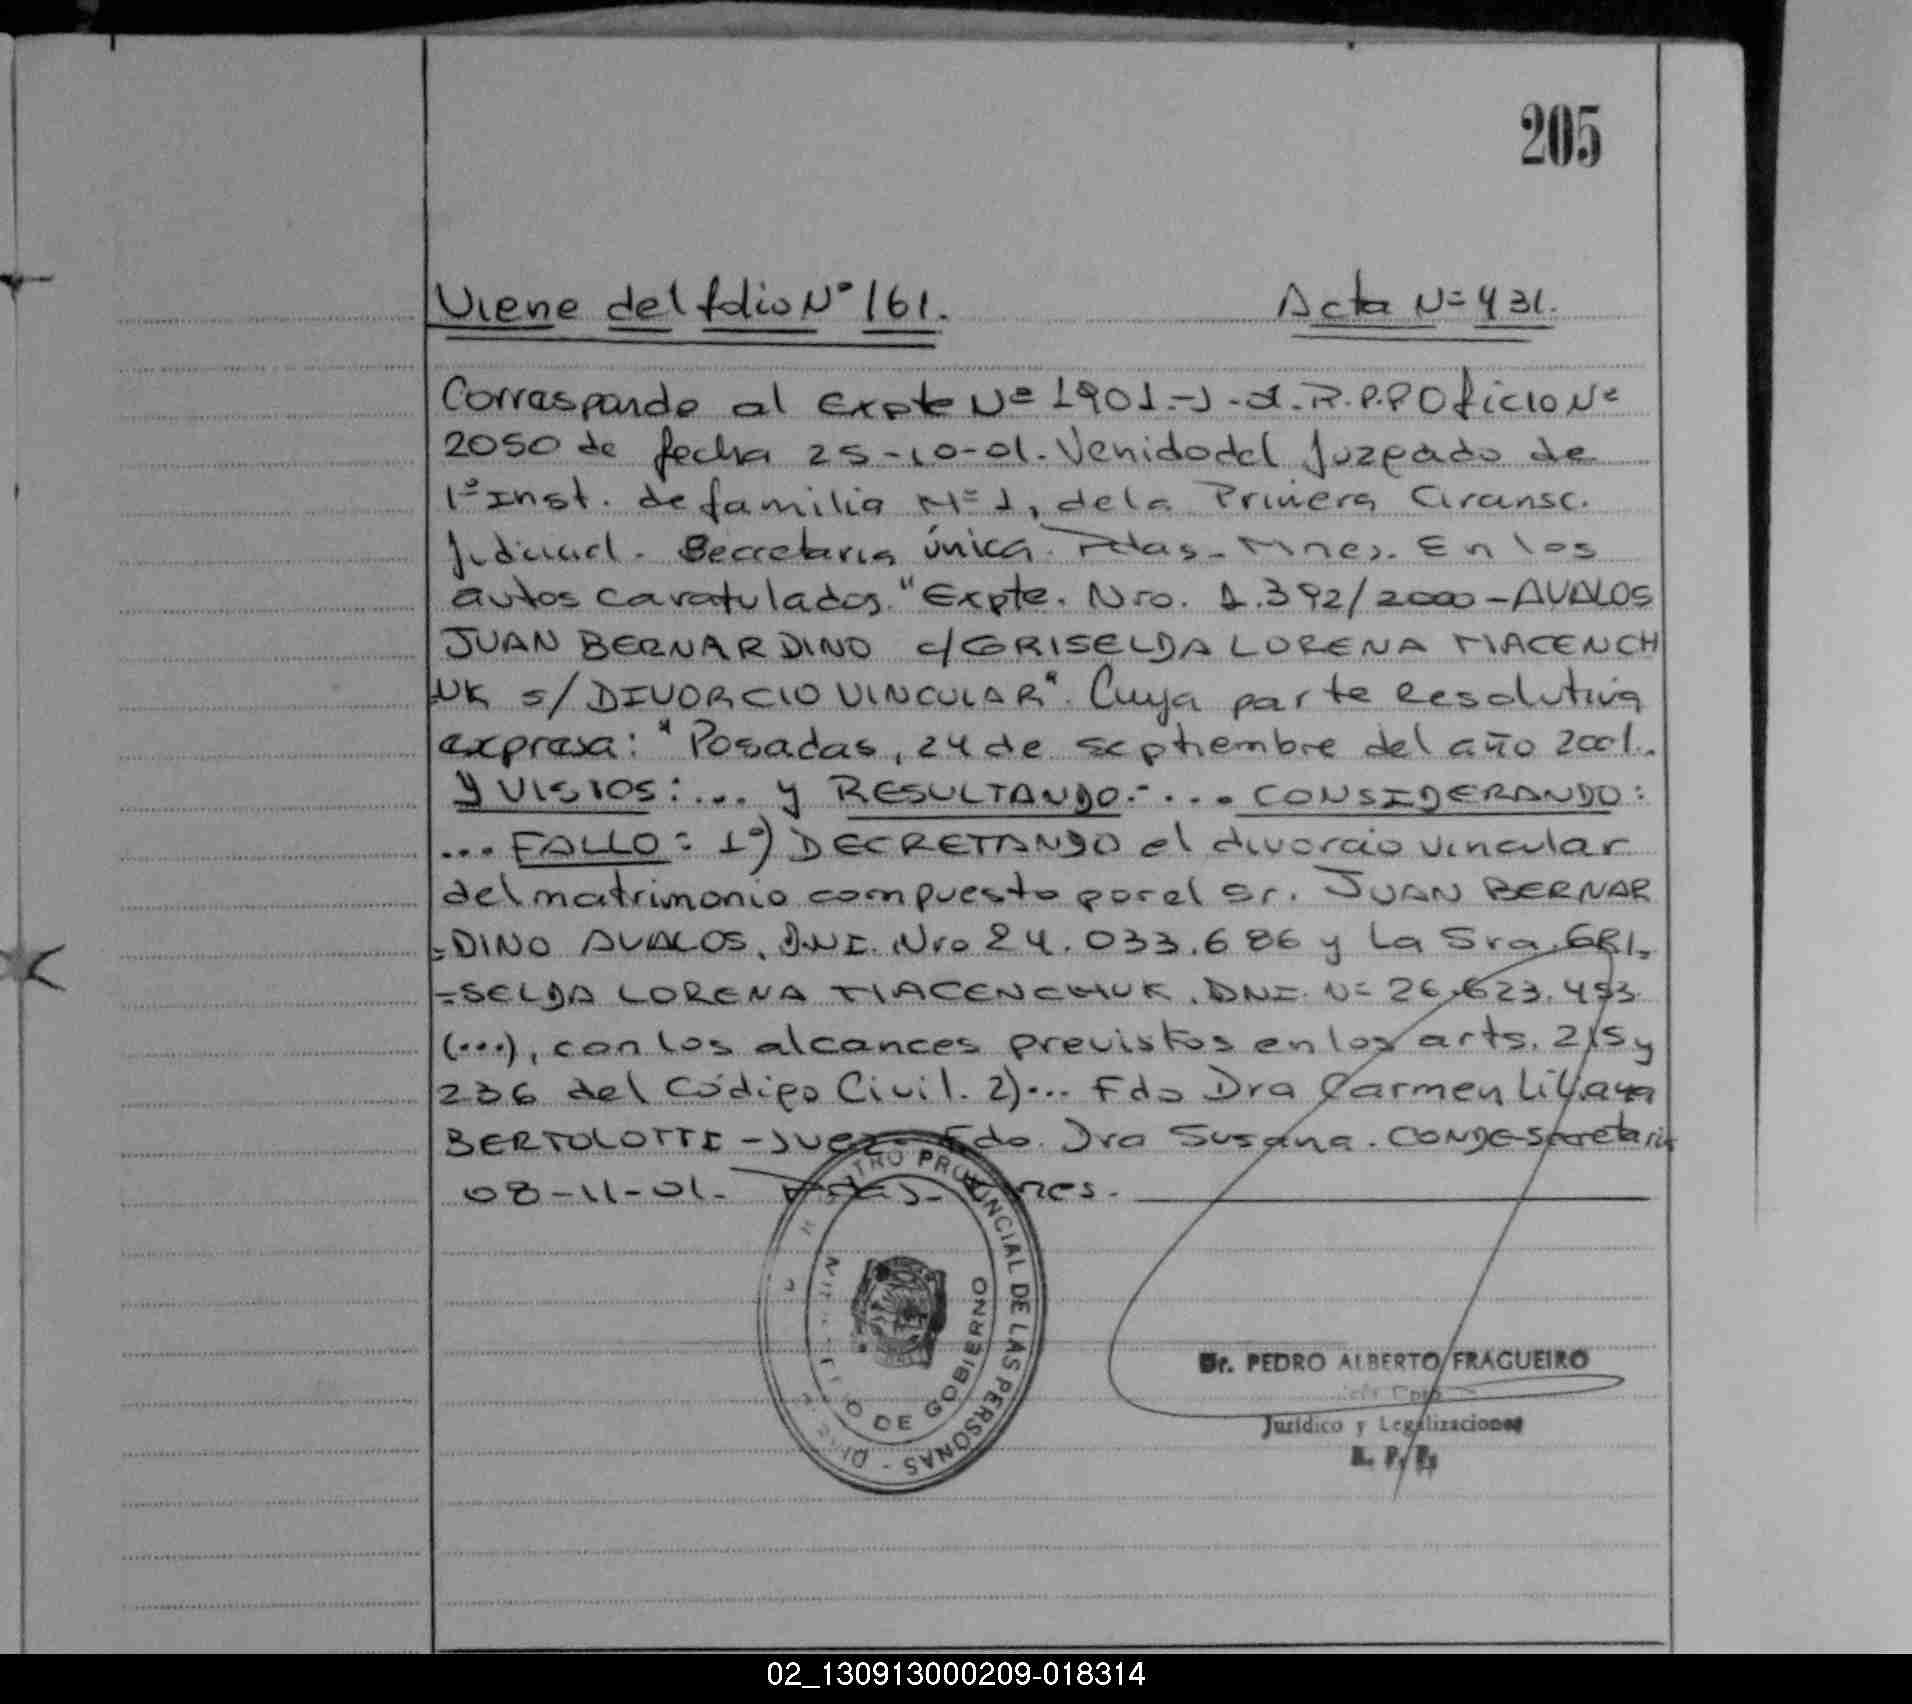 205
Viene del folio N° 161.
Acta N= 431.
Corresponde al Expte Nº 1901.-J-d.R.P.P Oficio Nº
2050 de fecha 25-10-01. Venido del Juzgado de
1º Inst. de familia Nº 1, de la Primera Circunsc.
Judicial. Secretaria única. Pdas.- Mnes. En los
autos caratulados. "Expte. Nro. 1.392/2000 - AVALOS
JUAN BERNARDINO c/GRISELDA LORENA MACENCH
UK s/ DIVORCIO VINCULAR". Cuya parte Resolutiva
expresa: "Posadas, 24 de septiembre del año 2001..
Y VISTOS: ... y RESULTANDO:- ... CONSIDERANDO:
... FALLO: 1º) DECRETANDO el divorcio vincular
del matrimonio compuesto por el Sr. JUAN BERNAR
=DINO AVALOS. D.N.I. Nro 24.033.686 y La Sra. GRI=
=SELDA LORENA MACENCHUK. DNI. N= 26.623.453
(...), con los alcances previstos en los arts. 215 y
236 del Código Civil. 2)... Fdo Dra Carmen Liliana
BERTOLOTTI - Juez - Fdo. Dra Susana. CONDE-Secretaria
08-11-01. Pdas- Mnes.
REGISTRO PROVINCIAL DE LAS PERSONAS -
MINISTERIO DE GOBIERNO
Dr. PEDRO ALBERTO FRAGUEIRO
Jurídico y Legalizaciones
R. P. P.
02_130913000209-018314